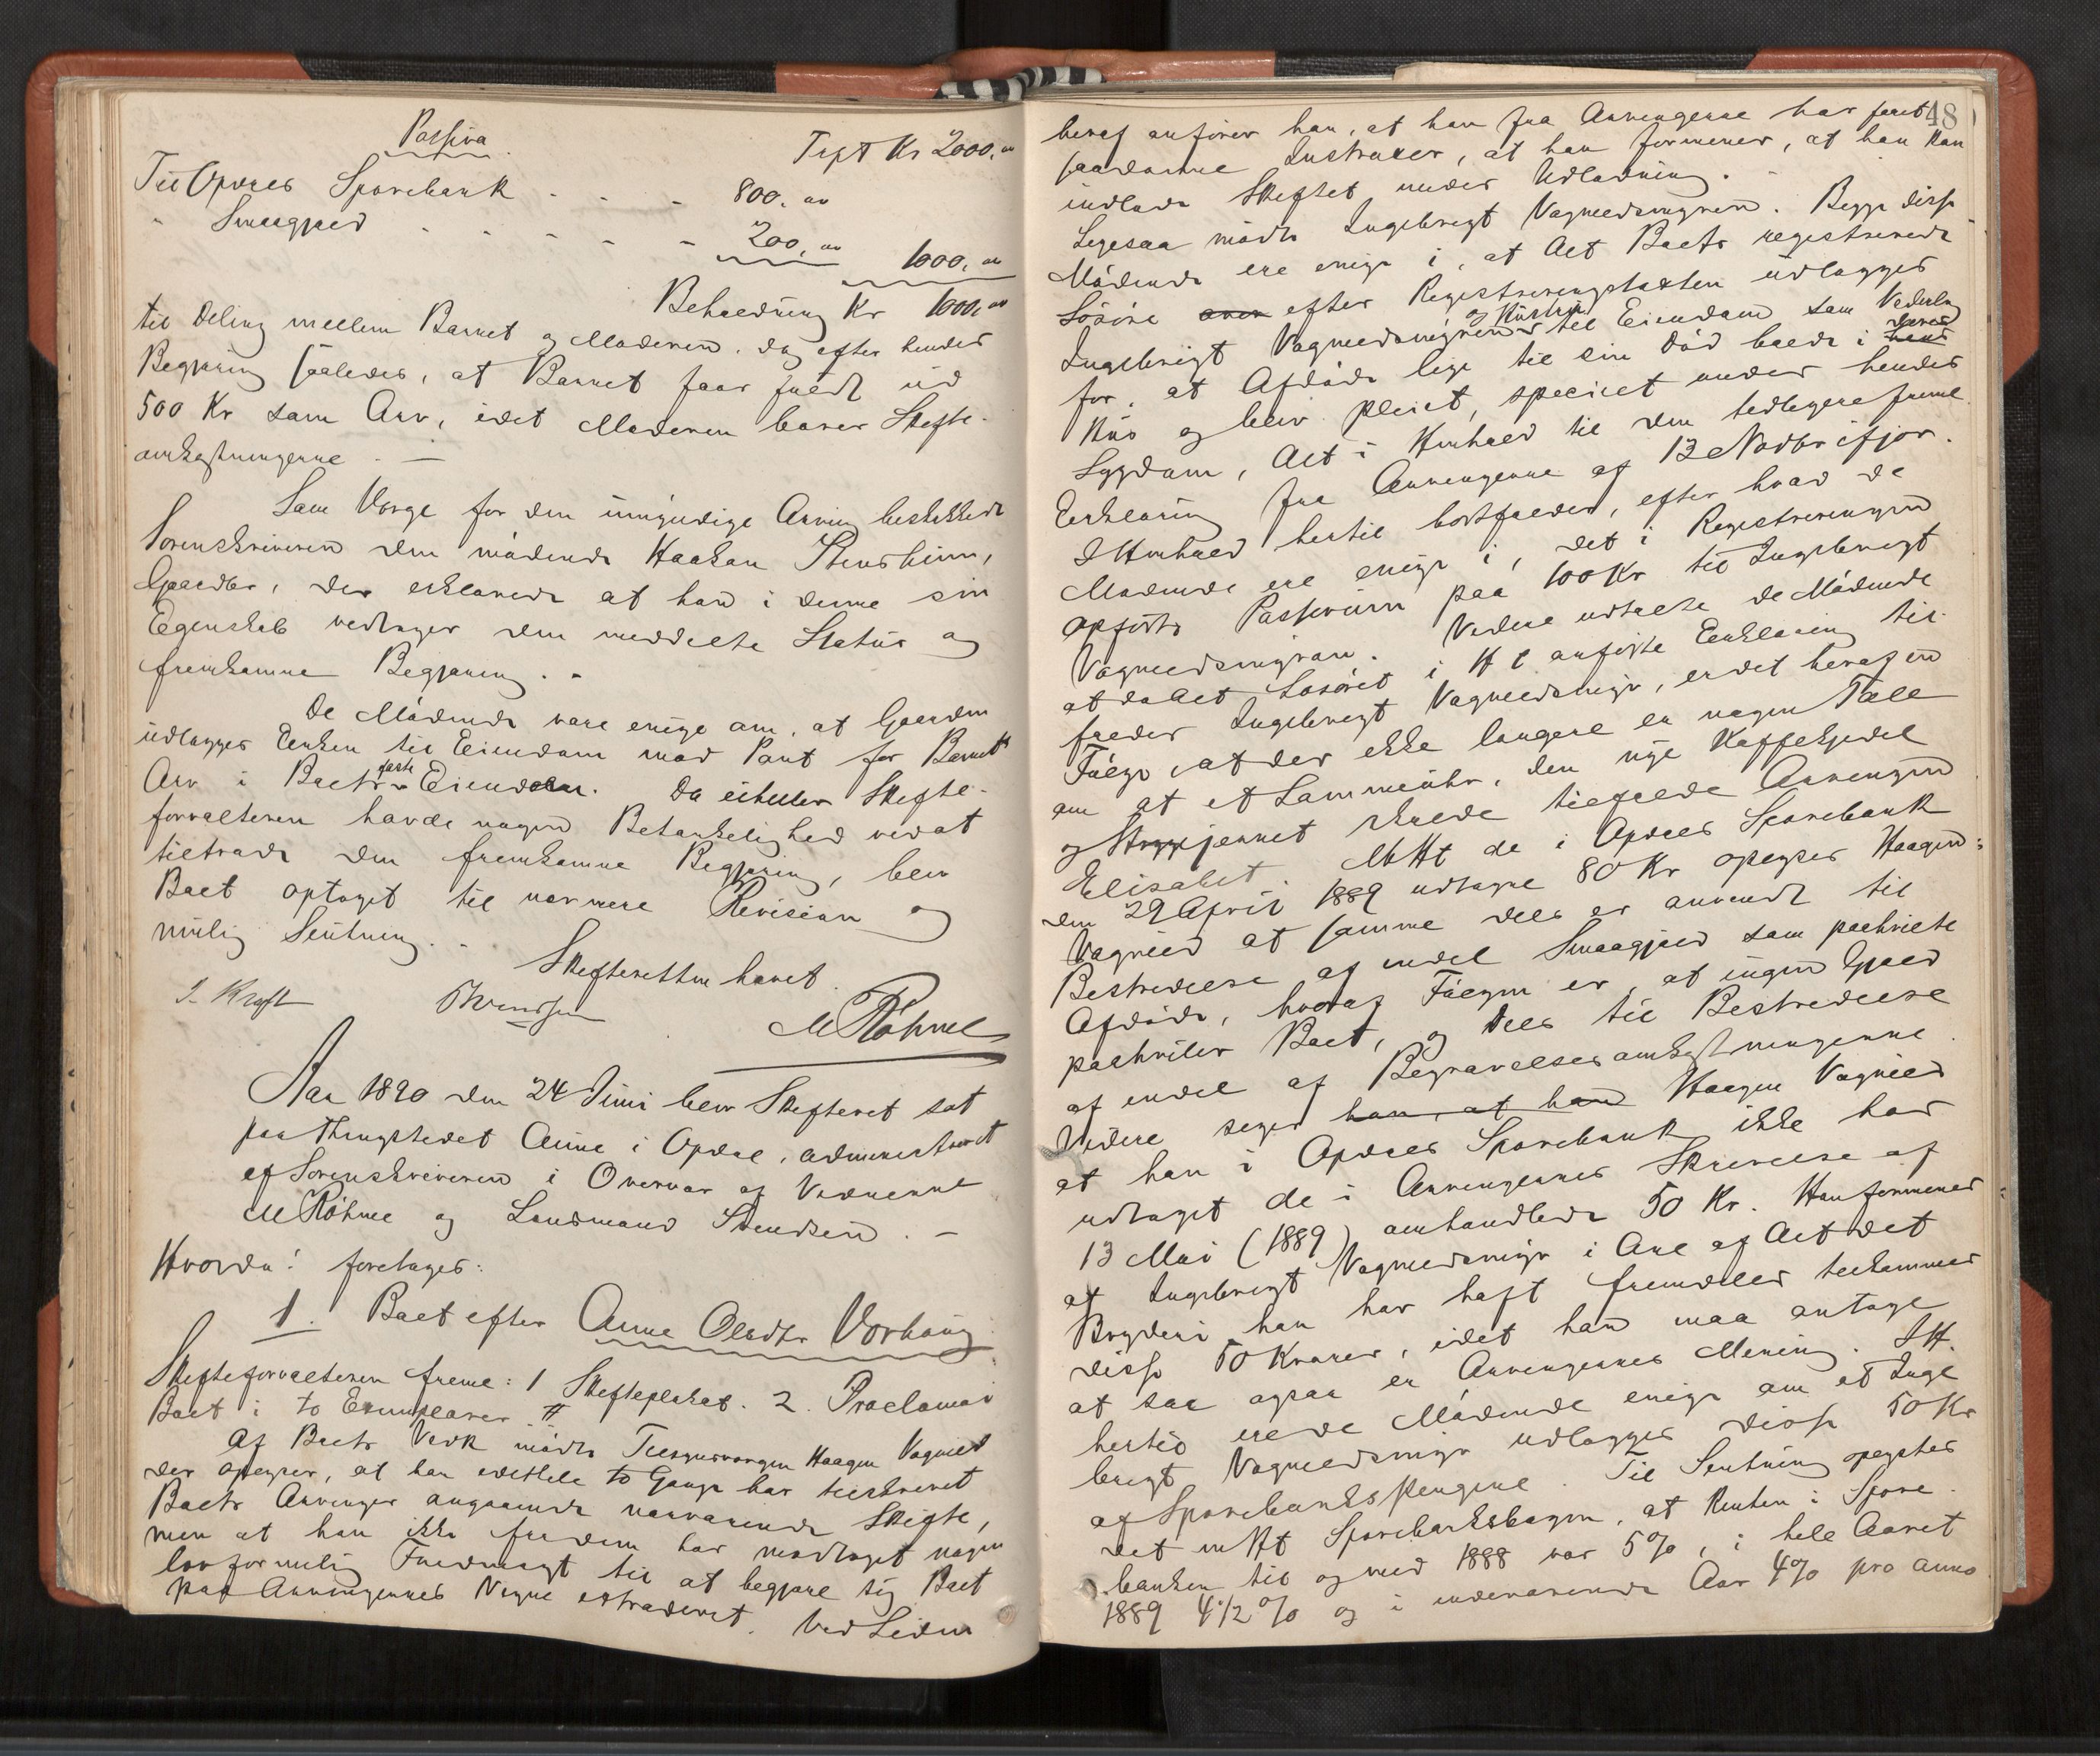 Passiva
Trpt Kr 2000. "
Til Opdals Sparebank - - - 800. "
" Smaagjæld - - - - - 200. " 1000. "
Beholdning Kr 1000. "
til Deling mellem Barnet og Moderen, dog efter hendes
Begjæring saaledes, at Barnet faar fuldt ud
500 Kr som Arv, idet Moderen bærer Skifte-
omkostningerne. —
Som Værge for den umyndige Arving beskikkede
Sorenskriveren den mødende Haakon Stensheim,
Gaardbr, der erklærede at han i denne sin
Egenskab vedtager den meddelte Status og
fremkomne Begjæring. -
De Mødende vare enige om, at Gaarden
udlægges Enken til Eiendom mod Pant for Barnets
Arv i Boets faste Eiendom. Da ei heller Skifte-
forvalteren havde nogen Betænkelighed ved at
tiltræde den fremkomne Begjæring, blev
Boet optaget til nærmere Revision og
mulig Slutning. -
Skifteretten hævet.
I. Kraft TSvendsen M Røhme
Aar 1890 den 24 Juni blev Skifteret sat
paa Thingstedet Aune i Opdal, administreret
af Sorenskriveren i Overvær af Vidnerne
M Røhme og Lensmand Svendsen. -
Hvorda: foretages:
1. Boet efter Anne Olsdtr Vorhaug
Skifteforvalteren freml: 1 Skifteplakat. 2. Proclamai
Boet i to Exemplarer #
Af Boets Vedk mødte Tilsynsværgen Haagen Vognild
der oplyser, at han edetlele to Gange har tilskrevet
Boets Arvinger angaaende nærværende Skifte,
men at han ikke fra dem har modtaget nogen
lovformelig Fuldmagt til at begjære sig Boet
paa Arvingernes Vegne extraderet. Ved Siden
48
heraf anfører han, at han fra Arvingerne har faaet
saadanne Instruxer, at han formener, at han kan
indlade Skiftet under Udlodning. -
Ligesaa mødte Ingebrigt Vognildsmyren. Begge disse
Mødende ere enige i, at Alt Boets registrerede
Løsøre oven efter Registreringstaxten udlægges
Ingebrigt Vognildsmyren og Hustru til Eiendom som Vederlag
for, at Afdøde lige til sin Død boede i hans deres
Hus og blev pleiet, specielt under hendes
Sygdom, Alt i Henhold til den tidligere freml.
Erklæring fra Arvingerne af 13 Novbr ifjor.
I Henhold hertil bortfalder, efter hvad de
Mødende ere enige i, det i Registreringen
opførte Passivum paa 100 Kr til Ingebrigt
Vognildsmyren. Videre udtalte de Mødende
at da Alt Løsøret i H t anførte Erklæring til-
falder Ingebrigt Vognildsmyr, er det heraf en
Følge, at der ikke længere er nogen Tale
om at et Lommeuhr, den nye Kaffekjedel
og Strygejernet skulde tilfalde Arvingen
Elisabet. M Ht de i Opdals Sparebank
den 29 April 1889 udtagne 80 Kr oplyser Haagen
Vognild at samme dels er anvendt til
Bestridelse af endel Smaagjæld som paahvilte
Afdøde, hvoraf Følgen er, at ingen Gjæld
paahviler Boet, og dels til Bestridelse
af endel af Begravelsesomkostningerne.
Videre siger han, at han Haagen Vognild
at han i Opdals Sparebank ikke har
udtaget de i Arvingernes Skrivelse af
13 Mai (1889) omhandlede 50 Kr. Han formener
at Ingebrigt Vognildsmyr i Anl af Alt det
Bryderi han har haft fremdeles tilkommer
disse 50 Kroner, idet han maa antage
at saa ogsaa er Arvingernes Mening. I H.
hertil ere de Mødende enige om at Inge
brigt Vognildsmyr udlægges disse 50 Kr
af Sparebankspengene. Til Slutning oplystes
det m Ht Sparebanksbogen, at Renten i Spare-
banken til og med 1888 var 5 %, i hele Aaret
1889 4 1/2 % og i indeværende Aar 4 % pro anno